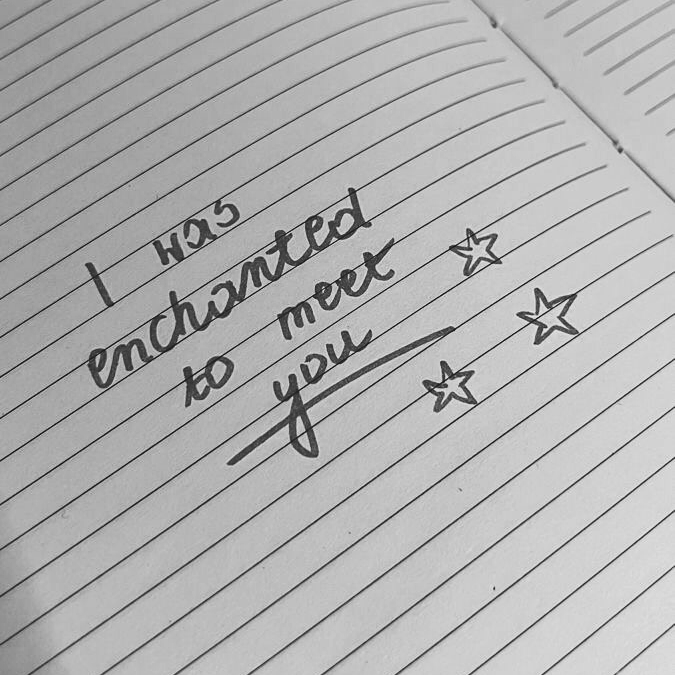 I was
enchanted
to meet
you